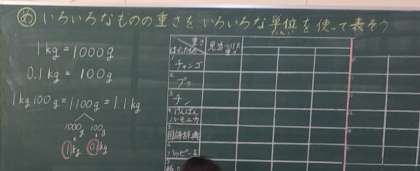 め いろいろなものの重さをいろいろな単位を使って表そう
たんい
1kg=1000g
0.1kg=100g
1kg100g=1100g=1.1kg
1000g 100g
1kg 0.1kg
重さ
見当
チャンゴ
プク
チン
けんばんハーモニカ
国語辞典